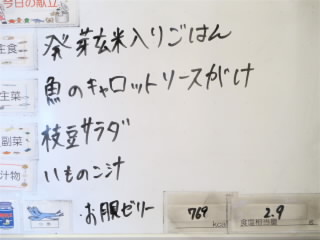 今日の献立
主食 発芽玄米入りごはん
主菜 魚のキャロットソースがけ
副菜 枝豆サラダ
汁物 いものこ汁
・お魚ゼリー 769 kcal 食塩相当量 2.9 g